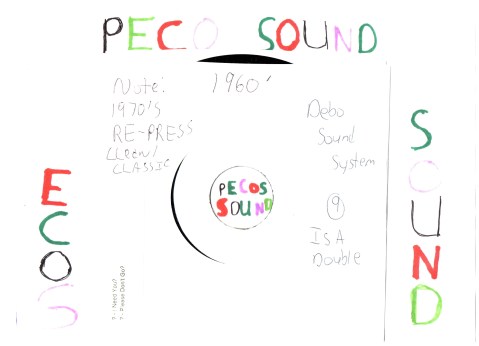 PECO SOUND
Note:
1970'S
RE-PRESS
CLASSIC
1960'
Debo
Sound
System
9
Is A
Double
PECOS
SOUND
ECOS
SOUND
?- I Need You?
?- Please Don't Go?